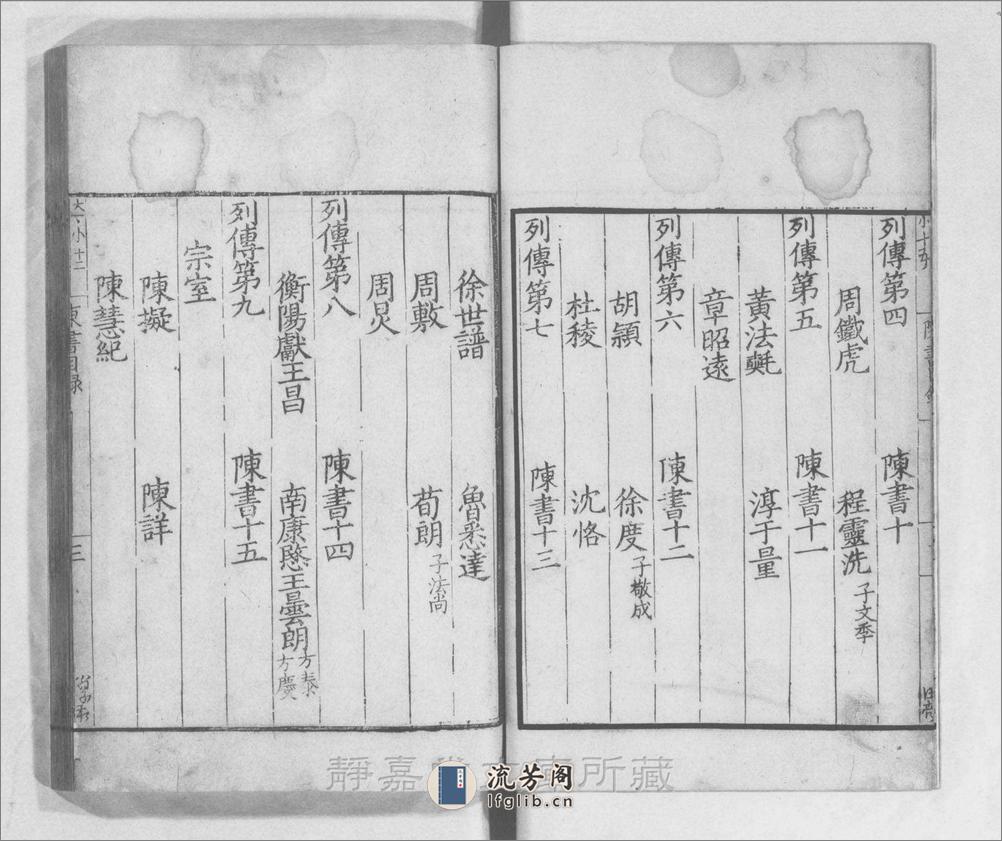 列傳第四 陳書十
周鐵虎 程靈洗 子文季
列傳第五 陳書十一
黃法𣰋 淳于量
章昭遠
列傳第六 陳書十二
胡穎 徐度 子敬成
杜稜 沈恪
列傳第七 陳書十三
徐世譜 魯悉達
周敷 荀朗 子法尚
周炅
列傳第八 陳書十四
衡陽獻王昌 南康愍王曇朗 方泰 方慶
列傳第九 陳書十五
宗室
陳擬 陳詳
陳慧紀
陳書目録
三
靜嘉堂文庫所藏
流芳阁
lfglib.cn